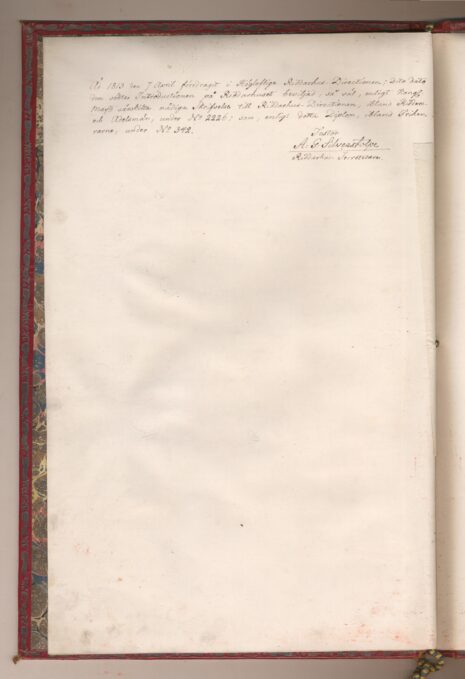 År 1813 den 7 April föredraget i Högloflige Riddarhus-Directionen; Dito dato
den sedter Introductionen på Riddarhuset beviljad, så väl, enligt Kongl.
Maj:ts särskilta nådiga Skrifvelse till Riddarhus-Directionen, ibland Riddare
och Adelsmän, under No 2226; som, enligt detta Diplom, ibland Friher-
rarne, under No 342.
A. G. Silverstolpe
Riddarhus Secreterare.